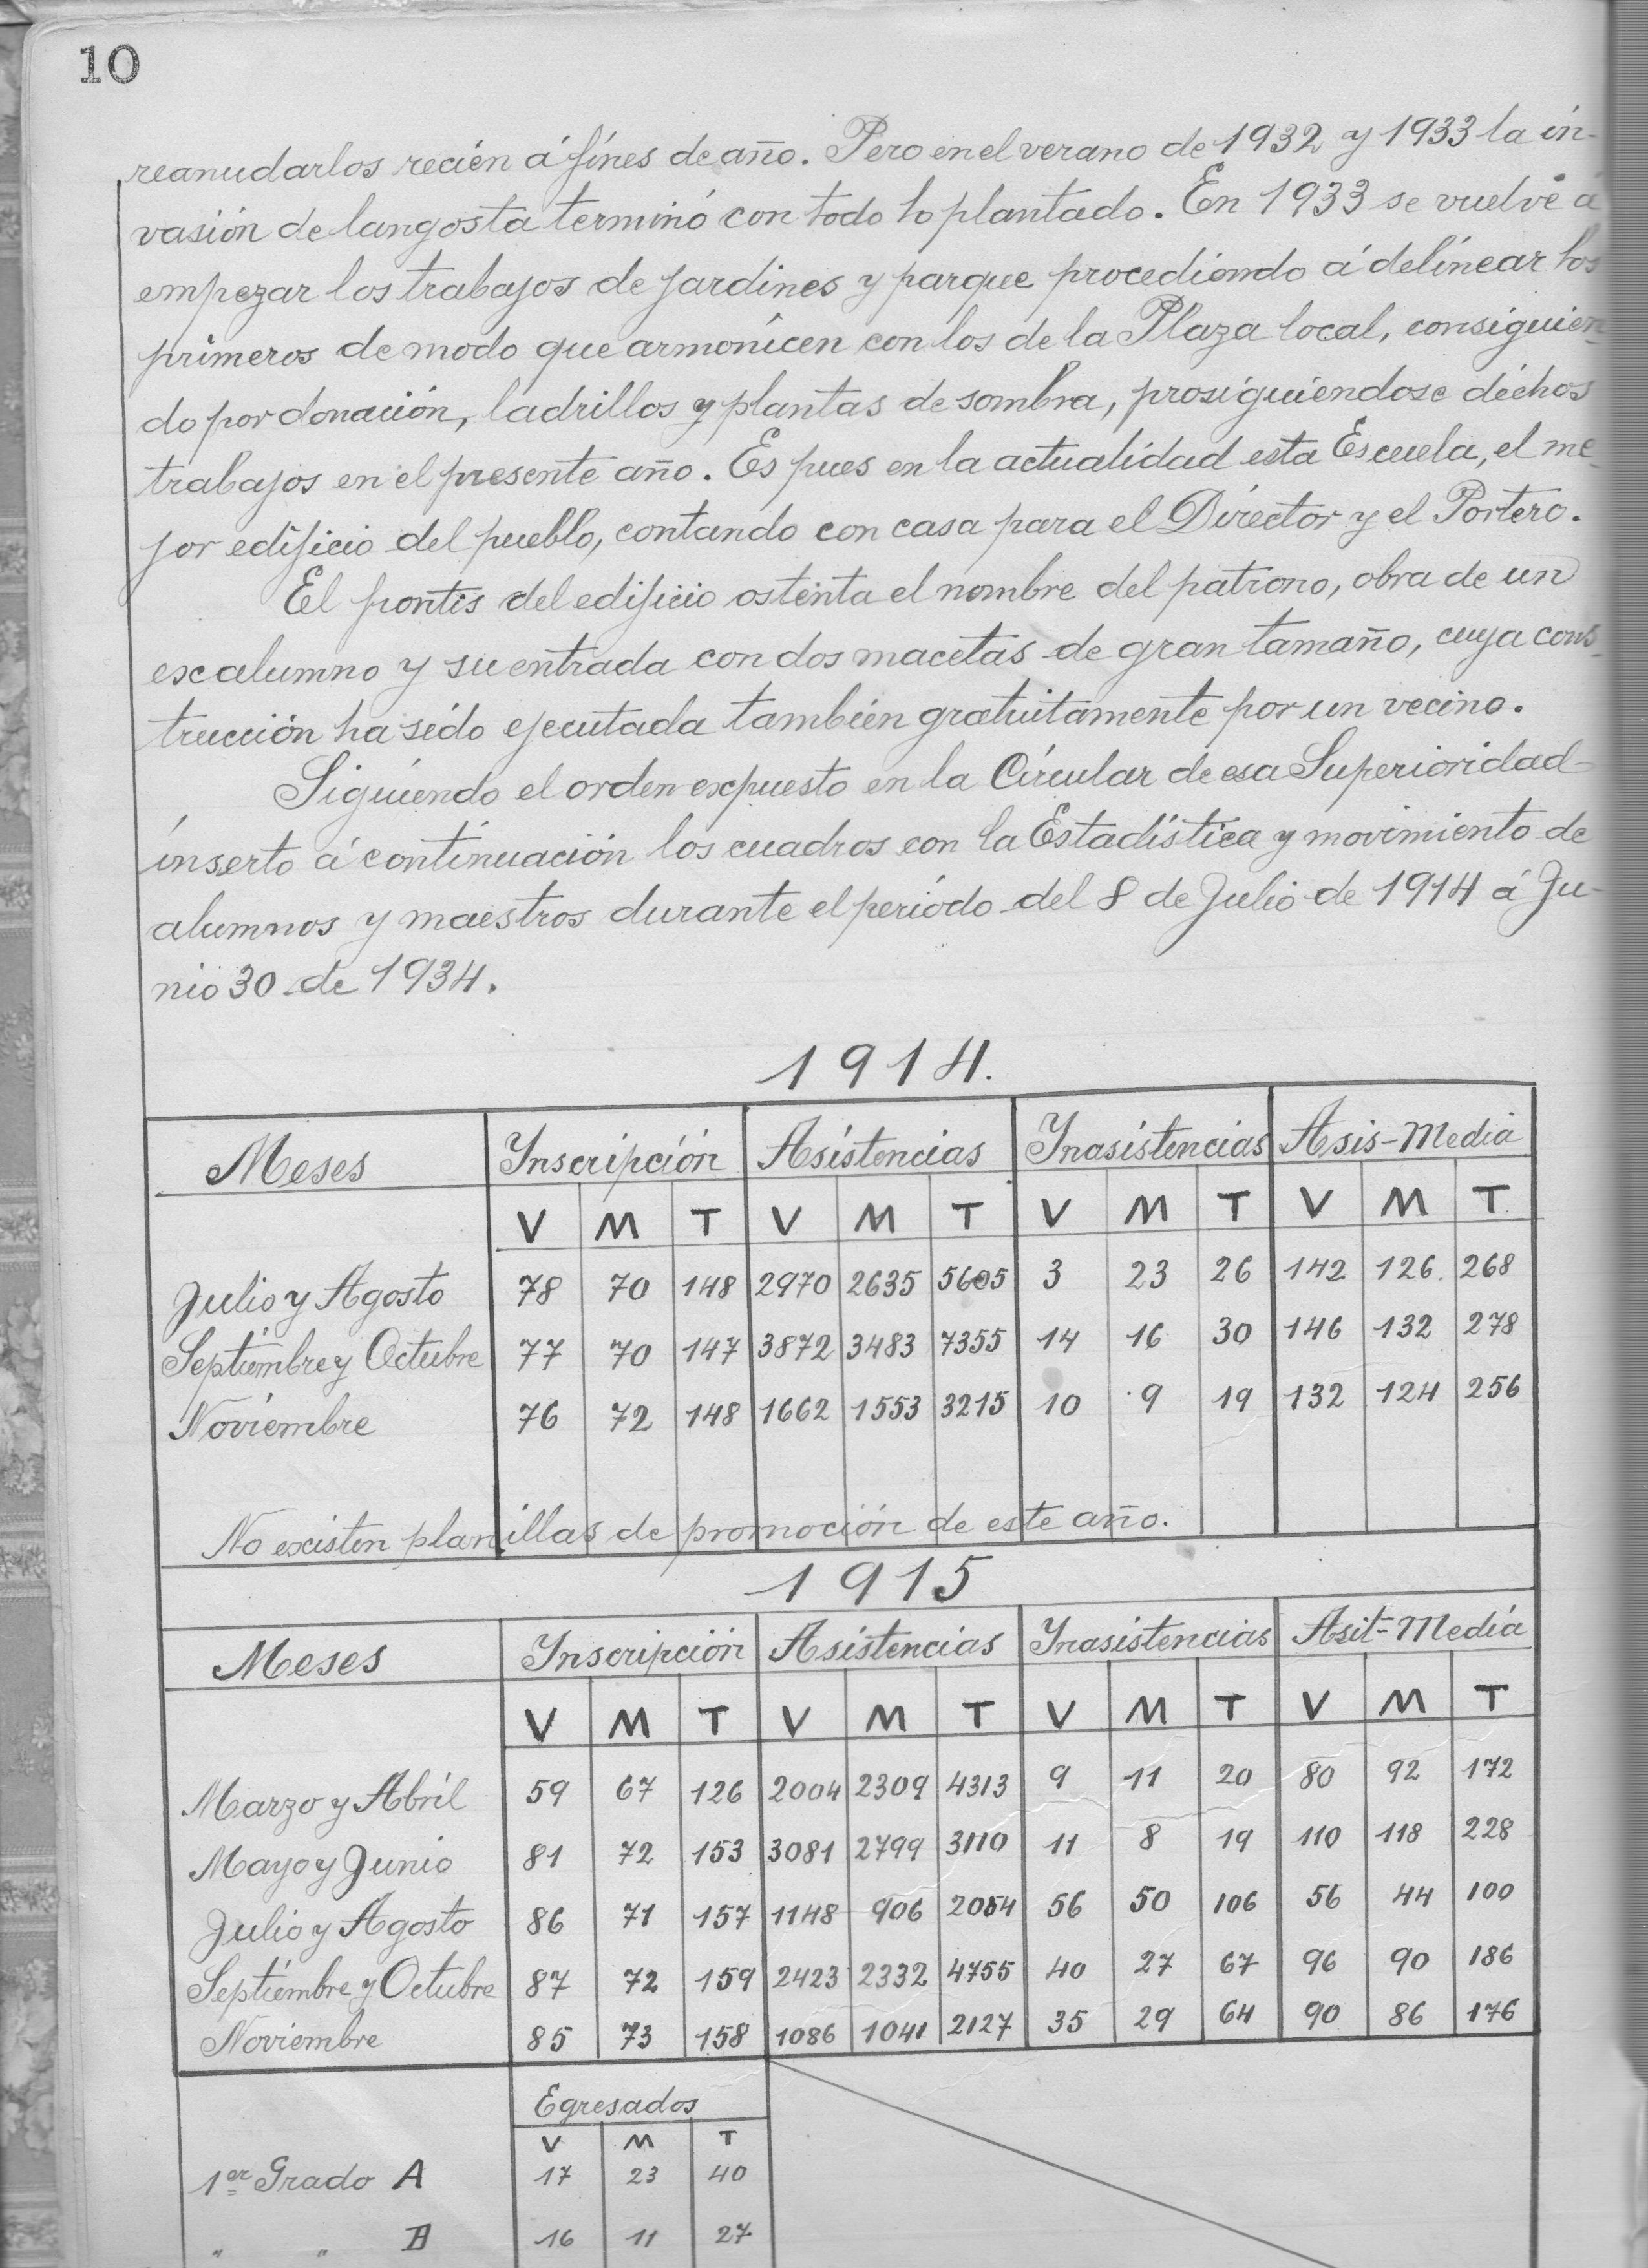 10
reanudarlos recién á fines de año. Pero en el verano de 1932 y 1933 la in-
vasión de langosta terminó con todo lo plantado. En 1933 se vuelve á
empezar los trabajos de jardines y parque procediendo á delinear los
primeros de modo que armonicen con los de la Plaza local, consiguien-
do por donación, ladrillos y plantas de sombra, prosiguiendose dichos
trabajos en el presente año. Es pues en la actualidad esta Escuela, el me-
jor edificio del pueblo, contando con casa para el Director y el Portero.
El frontis del edificio ostenta el nombre del patrono, obra de un
exalumno y su entrada con dos macetas de gran tamaño, cuya cons-
trucción ha sido ejecutada también gratuitamente por un vecino.
Siguiendo el orden expuesto en la Circular de esa Superioridad
inserto á continuación los cuadros con la Estadística y movimiento de
alumnos y maestros durante el período del 8 de Julio de 1914 á Ju-
nio 30 de 1934.
1914.
Meses Inscripción Asistencias Inasistencias Asis-Media
V M T V M T V M T V M T
Julio y Agosto 78 70 148 2970 2635 5605 3 23 26 142 126. 268
Septiembre y Octubre 77 70 147 3872 3483 7355 14 16 30 146 132 278
Noviembre 76 72 148 1662 1553 3215 10 9 19 132 124 256
No existen planillas de promoción de este año.
1915
Meses Inscripción Asistencias Inasistencias Asit-Media
V M T V M T V M T V M T
Marzo y Abril 59 67 126 2004 2309 4313 9 11 20 80 92 172
Mayo y Junio 81 72 153 3081 2799 3110 11 8 19 110 118 228
Julio y Agosto 86 71 157 1148 906 2054 56 50 106 56 44 100
Septiembre y Octubre 87 72 159 2423 2332 4755 40 27 67 96 90 186
Noviembre 85 73 158 1086 1041 2127 35 29 64 90 86 176
Egresados
V M T
1er Grado A 17 23 40
" " B 16 11 27